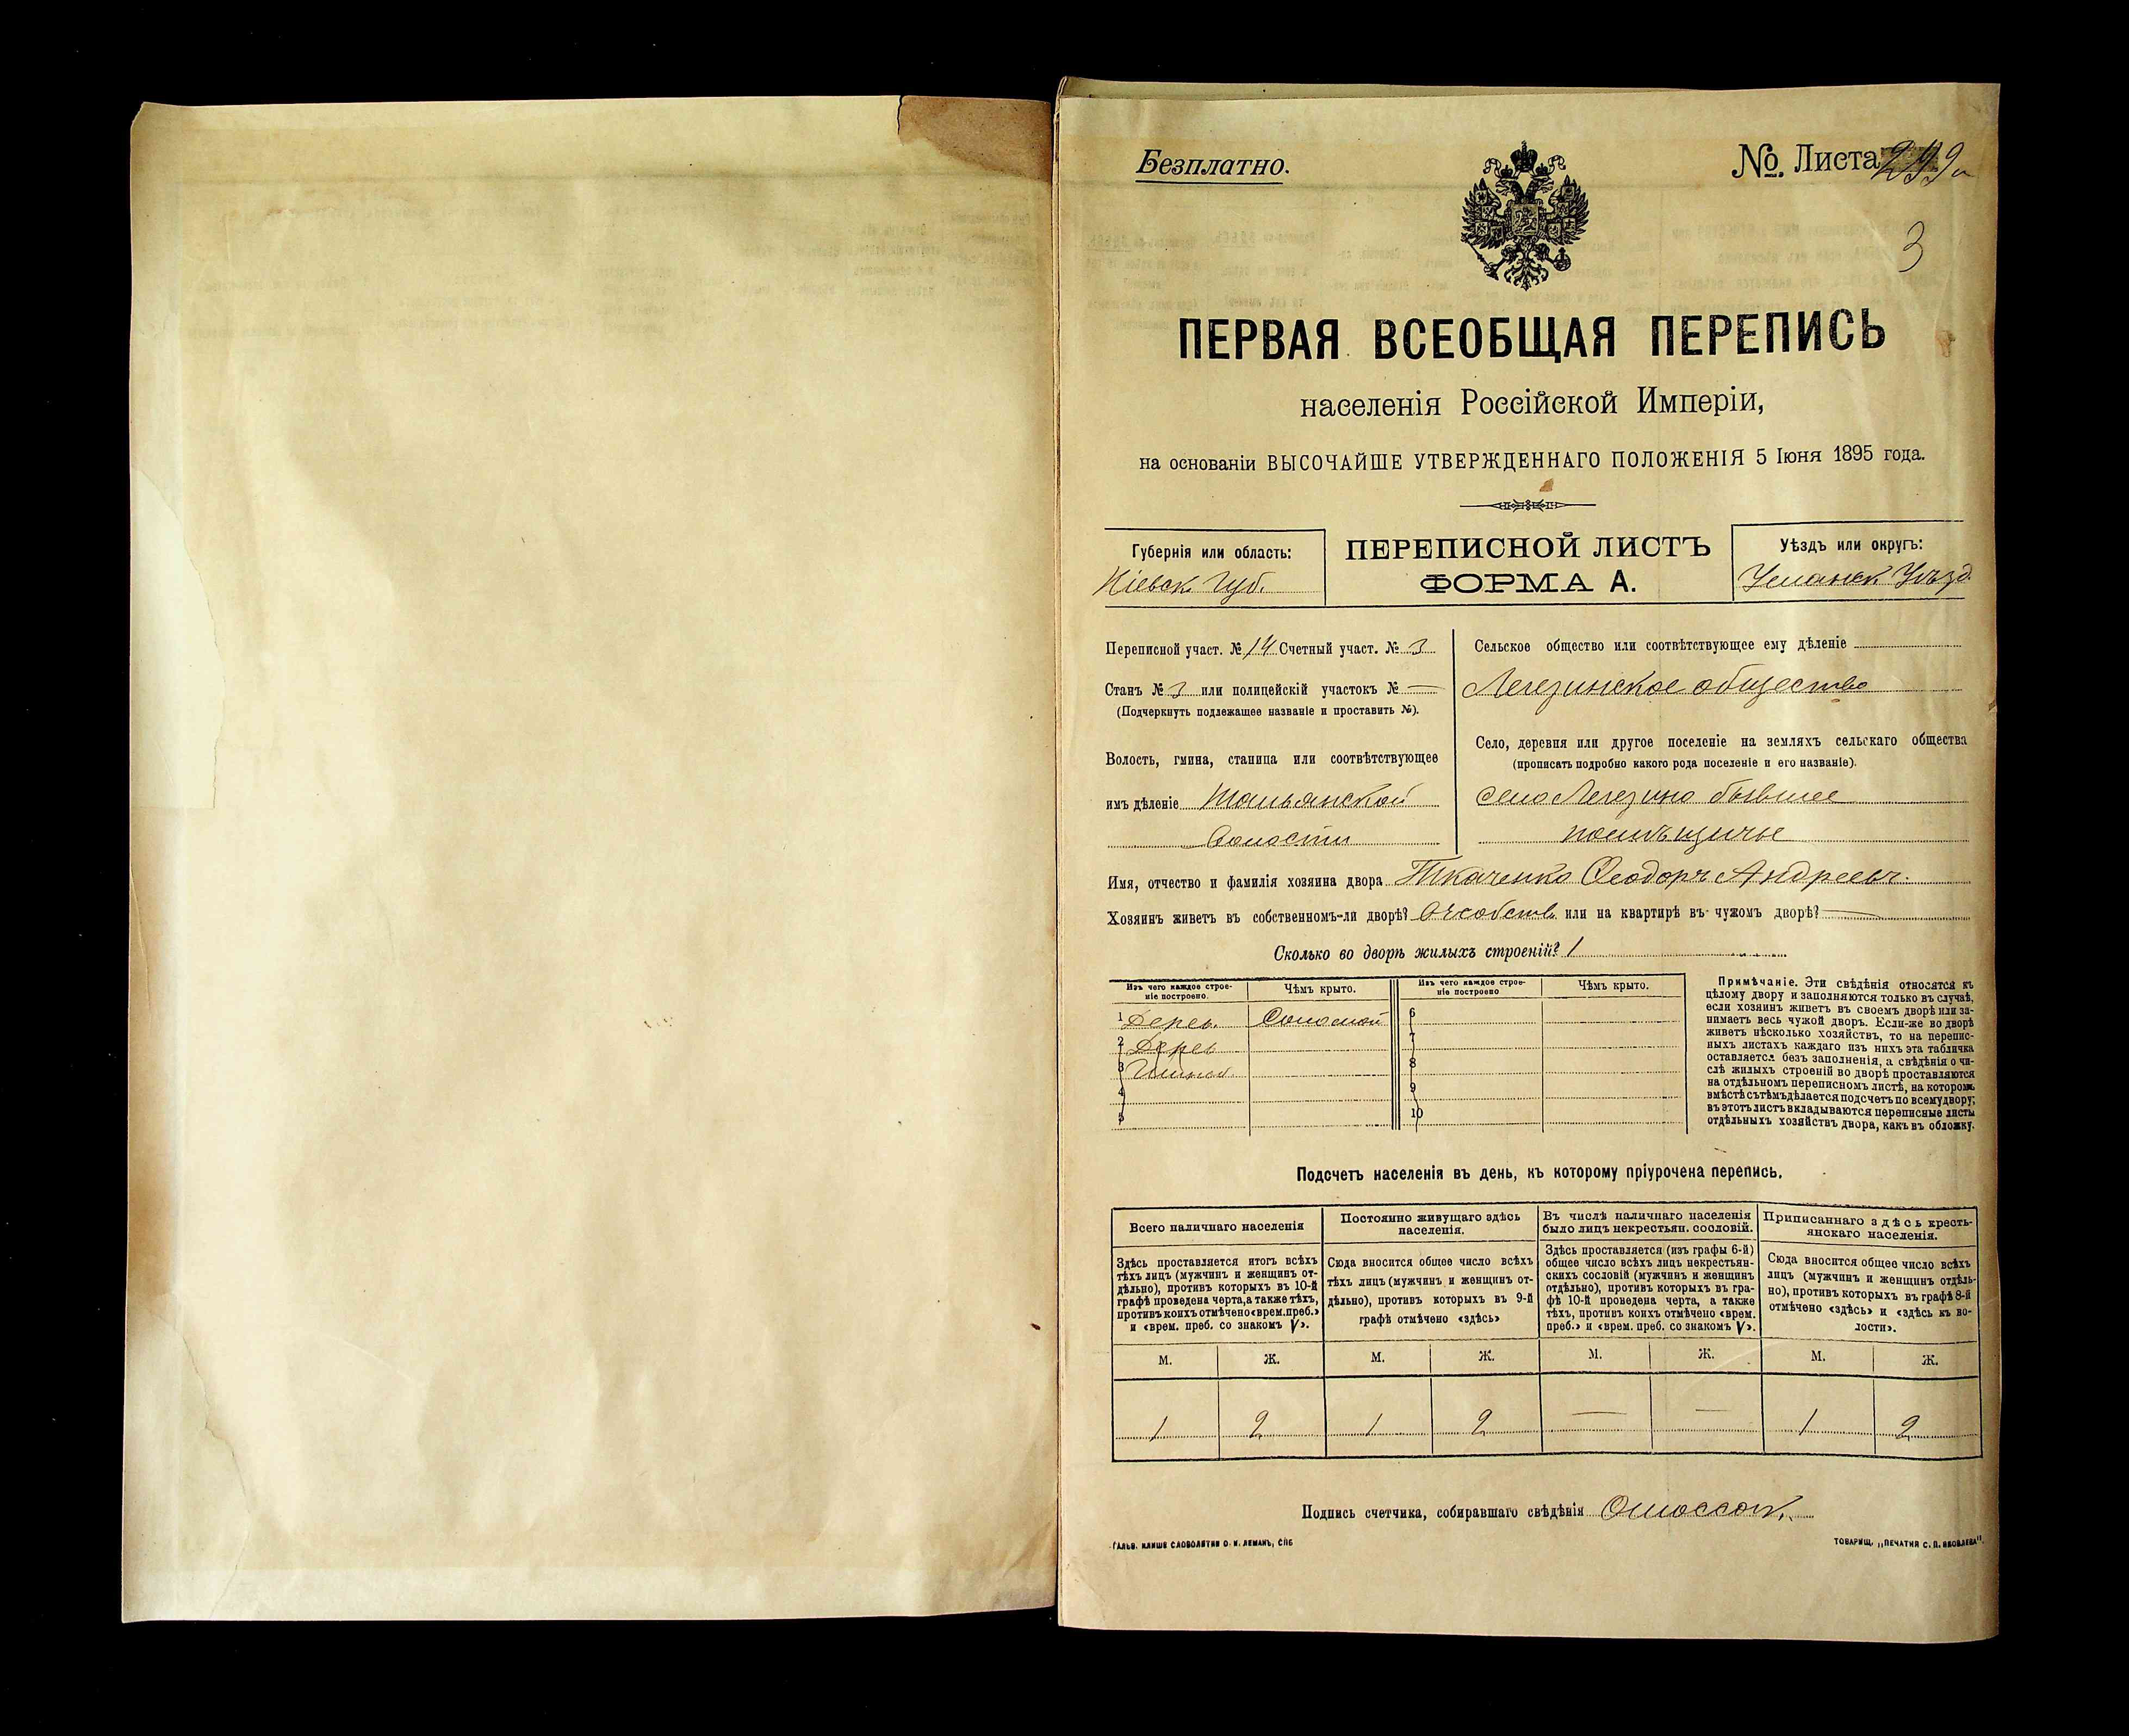 Безплатно.
№ Листа
3
ПЕРВАЯ ВСЕОБЩАЯ ПЕРЕПИСЬ
населенія Россійской Имперіи,
на основаніи ВЫСОЧАЙШЕ УТВЕРЖДЕННАГО ПОЛОЖЕНІЯ 5 Іюня 1895 года.
Губернія или область:
Кіевск. Губ.
ПЕРЕПИСНОЙ ЛИСТЪ
ФОРМА А.
Уѣздъ или округъ:
Уманск Уѣзд.
Переписной участ. № 14 Счетный участ. № 3
Станъ № 3 или полицейскій участокъ № —
(Подчеркнуть подлежащее названіе и проставить №).
Волость, гмина, станица или соотвѣтствующее
имъ дѣленіе Тальянской
волости
Сельское общество или соотвѣтствующее ему дѣленіе
Легезинское общество
Село, деревня или другое поселеніе на земляхъ сельскаго общества
(прописать подробно какого рода поселеніе и его названіе).
Село Легезино бывшее
помѣщичье
Имя, отчество и фамилія хозяина двора Ткаченко Ѳеодоръ Андреевъ.
Хозяинъ живетъ въ собственномъ-ли дворѣ? или на квартирѣ въ чужомъ дворѣ? —
Сколько во дворѣ жилыхъ строеній? 1
Изъ чего каждое строе-
ніе построено.
Чѣмъ крыто.
Изъ чего каждое строе-
ніе построено
Чѣмъ крыто.
1 Дерев. Соломой 6
2 Дерев 7
3 8
4 9
5 10
Примѣчаніе. Эти свѣдѣнія относятся къ
цѣлому двору и заполняются только въ случаѣ,
если хозяинъ живетъ въ своемъ дворѣ или за-
нимаетъ весь чужой дворъ. Если-же во дворѣ
живетъ нѣсколько хозяйствъ, то на перепис-
ныхъ листахъ каждаго изъ нихъ эта табличка
оставляется безъ заполненія, а свѣдѣнія о чи-
слѣ жилыхъ строеній во дворѣ проставляются
на отдѣльномъ переписномъ листѣ, на которомъ
вмѣстѣ съ тѣмъ дѣлается подсчетъ по всему двору;
въ этотъ листъ вкладываются переписные листы
отдѣльныхъ хозяйствъ двора, какъ въ обложку.
Подсчетъ населенія въ день, къ которому пріурочена перепись.
Всего наличнаго населенія
Постоянно живущаго здѣсь
населенія.
Въ числѣ наличнаго населенія
было лицъ некрестьян. сословій.
Приписаннаго здѣсь кресть-
янскаго населенія.
Здѣсь проставляется итогъ всѣхъ
тѣхъ лицъ (мужчинъ и женщинъ от-
дѣльно), противъ которыхъ въ 10-й
графѣ проведена черта, а также тѣхъ,
противъ коихъ отмѣчено «врем. преб.»
и «врем. преб. со знакомъ V».
Сюда вносится общее число всѣхъ
тѣхъ лицъ (мужчинъ и женщинъ от-
дѣльно), противъ которыхъ въ 9-й
графѣ отмѣчено «здѣсь»
Здѣсь проставляется (изъ графы 6-й)
общее число всѣхъ лицъ некрестьян-
скихъ сословій (мужчинъ и женщинъ
отдѣльно), противъ которыхъ въ гра-
фѣ 10-й проведена черта, а также
тѣхъ, противъ коихъ отмѣчено «врем.
преб.» и «врем. преб. со знакомъ V».
Сюда вносится общее число всѣхъ
лицъ (мужчинъ и женщинъ отдѣль-
но), противъ которыхъ въ графѣ 8-й
отмѣчено «здѣсь» и «здѣсь къ во-
лости».
М. Ж. М. Ж. М. Ж. М. Ж.
1 2 1 2 — — 1 2
Подпись счетчика, собиравшаго свѣдѣнія
ГАЛЬВ. КЛИШЕ СЛОВОЛИТНИ О. И. ЛЕМАНЪ, СПБ
ТОВАРИЩ. „ПЕЧАТНЯ С. П. ЯКОВЛЕВА".